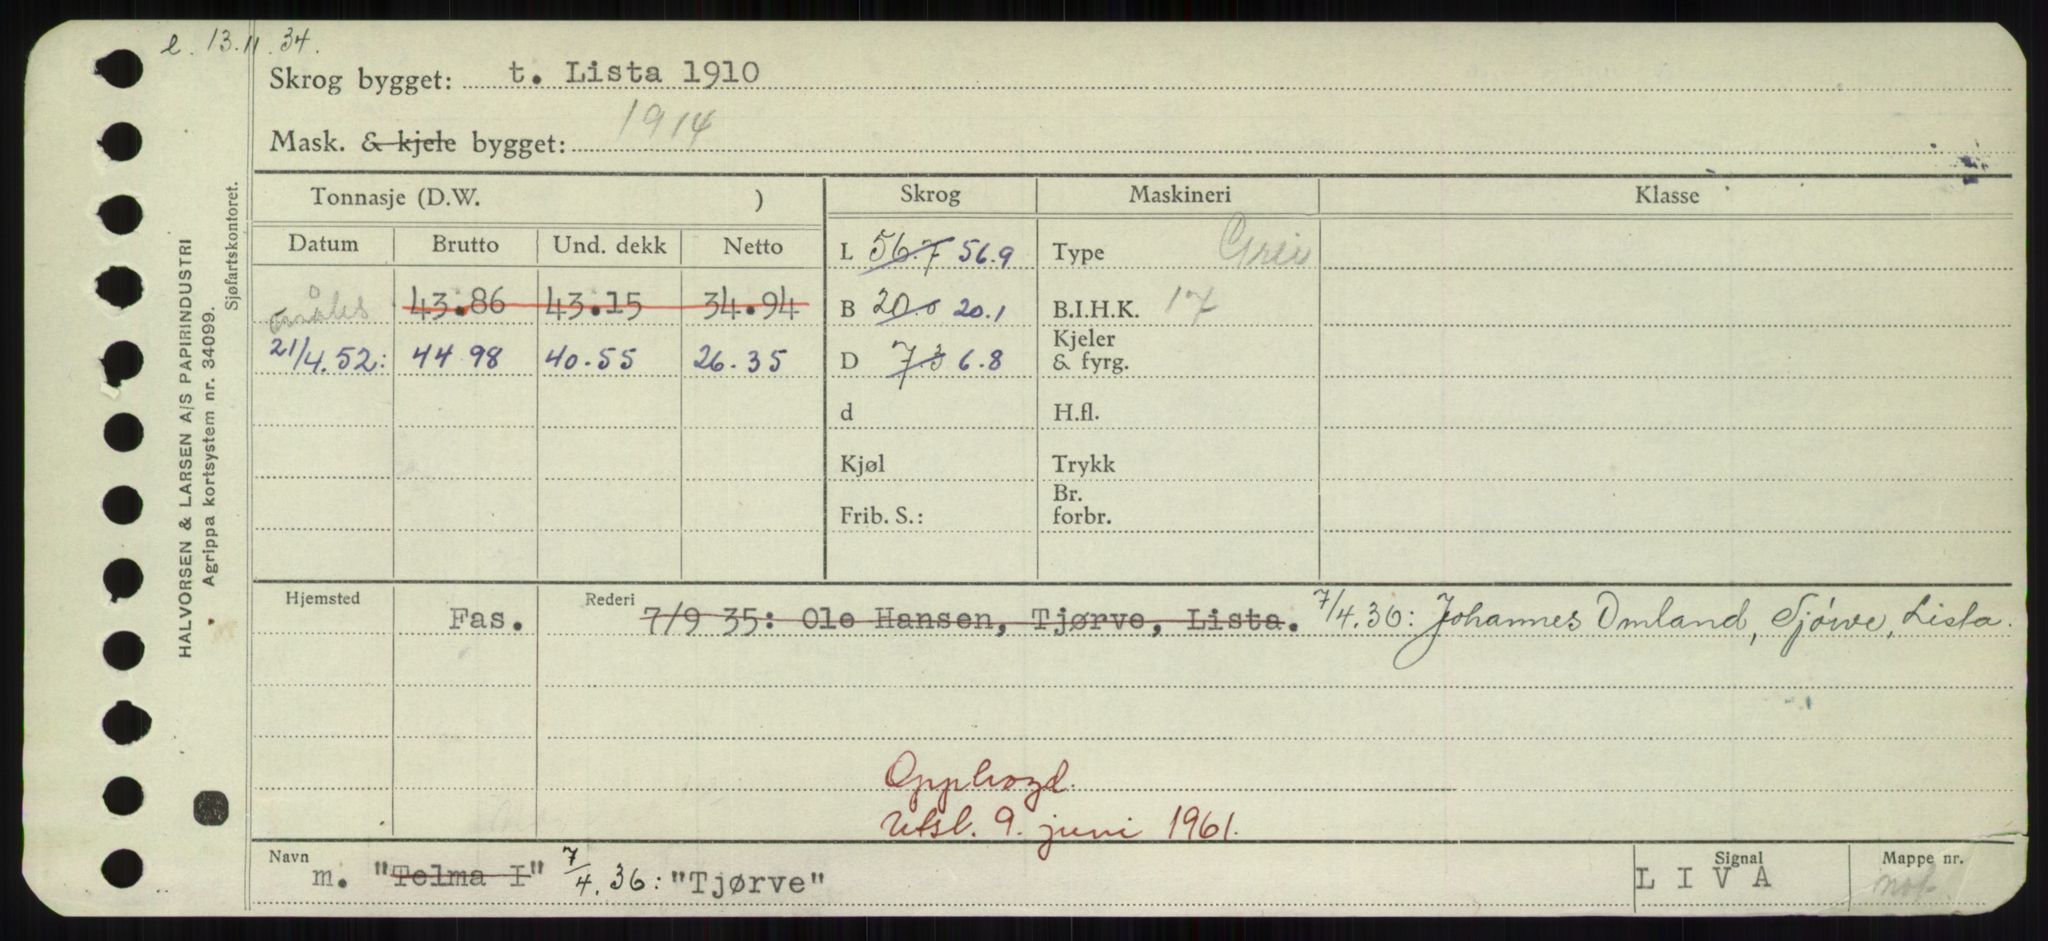 e. 13.11.34.
Skrog bygget: t. Lista 1910
Mask. & kjele bygget: 1914
Tonnasje (D.W. ) Skrog Maskineri Klasse
Datum Brutto Und. dekk Netto
L 56.7 56.9 Type
43.86 43.15 34.94 B 20.0 20.1 B.I.H.K. 17
21/4.52: 44 98 40.55 26.35 D 7.3 6.8 Kjeler & fyrg.
d H.fl.
Kjøl Trykk
Frib. S.: Br. forbr.
Hjemsted Fas. Rederi 7/9 35: Ole Hansen, Tjørve, Lista. 7/4.36: Johannes Omland, Tjörve, Lista.
Opphogd.
Utsl. 9. juni 1961.
Navn m. "Telma I" 7/4.36: "Tjørve" Signal L I V A Mappe nr.
HALVORSEN & LARSEN A/S PAPIRINDUSTRI
Agrippa kortsystem nr. 34099.
Sjøfartskontoret.